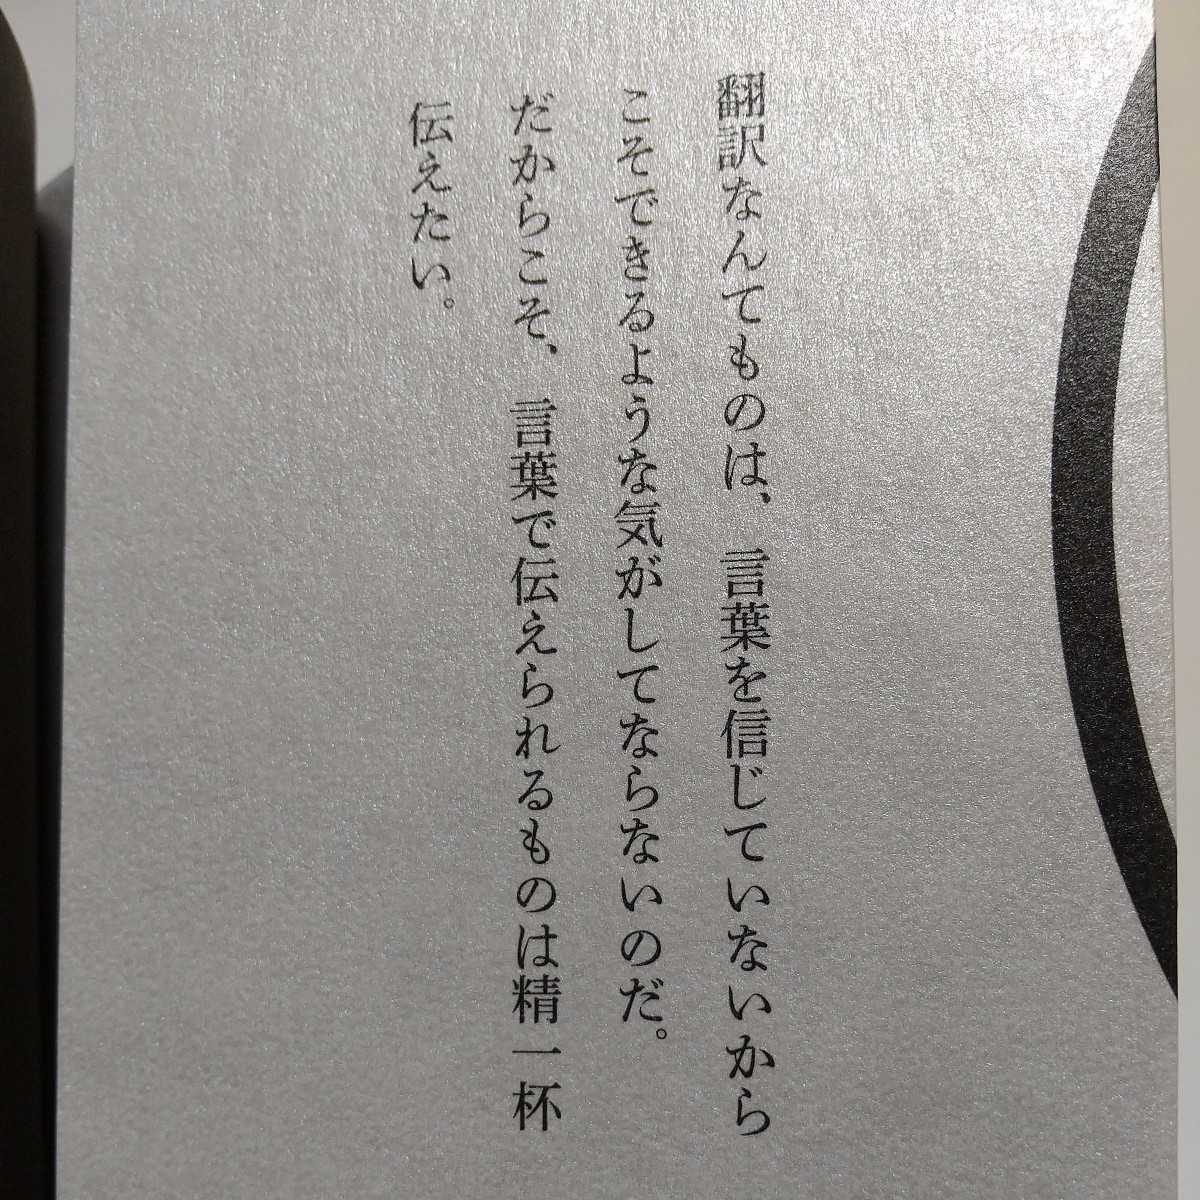 翻訳なんてものは、言葉を信じていないから
こそできるような気がしてならないのだ。
だからこそ、言葉で伝えられるものは精一杯
伝えたい。